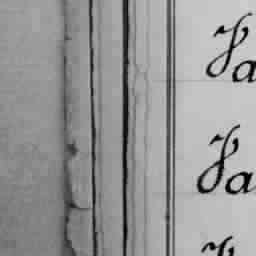 Ja
Ja
J